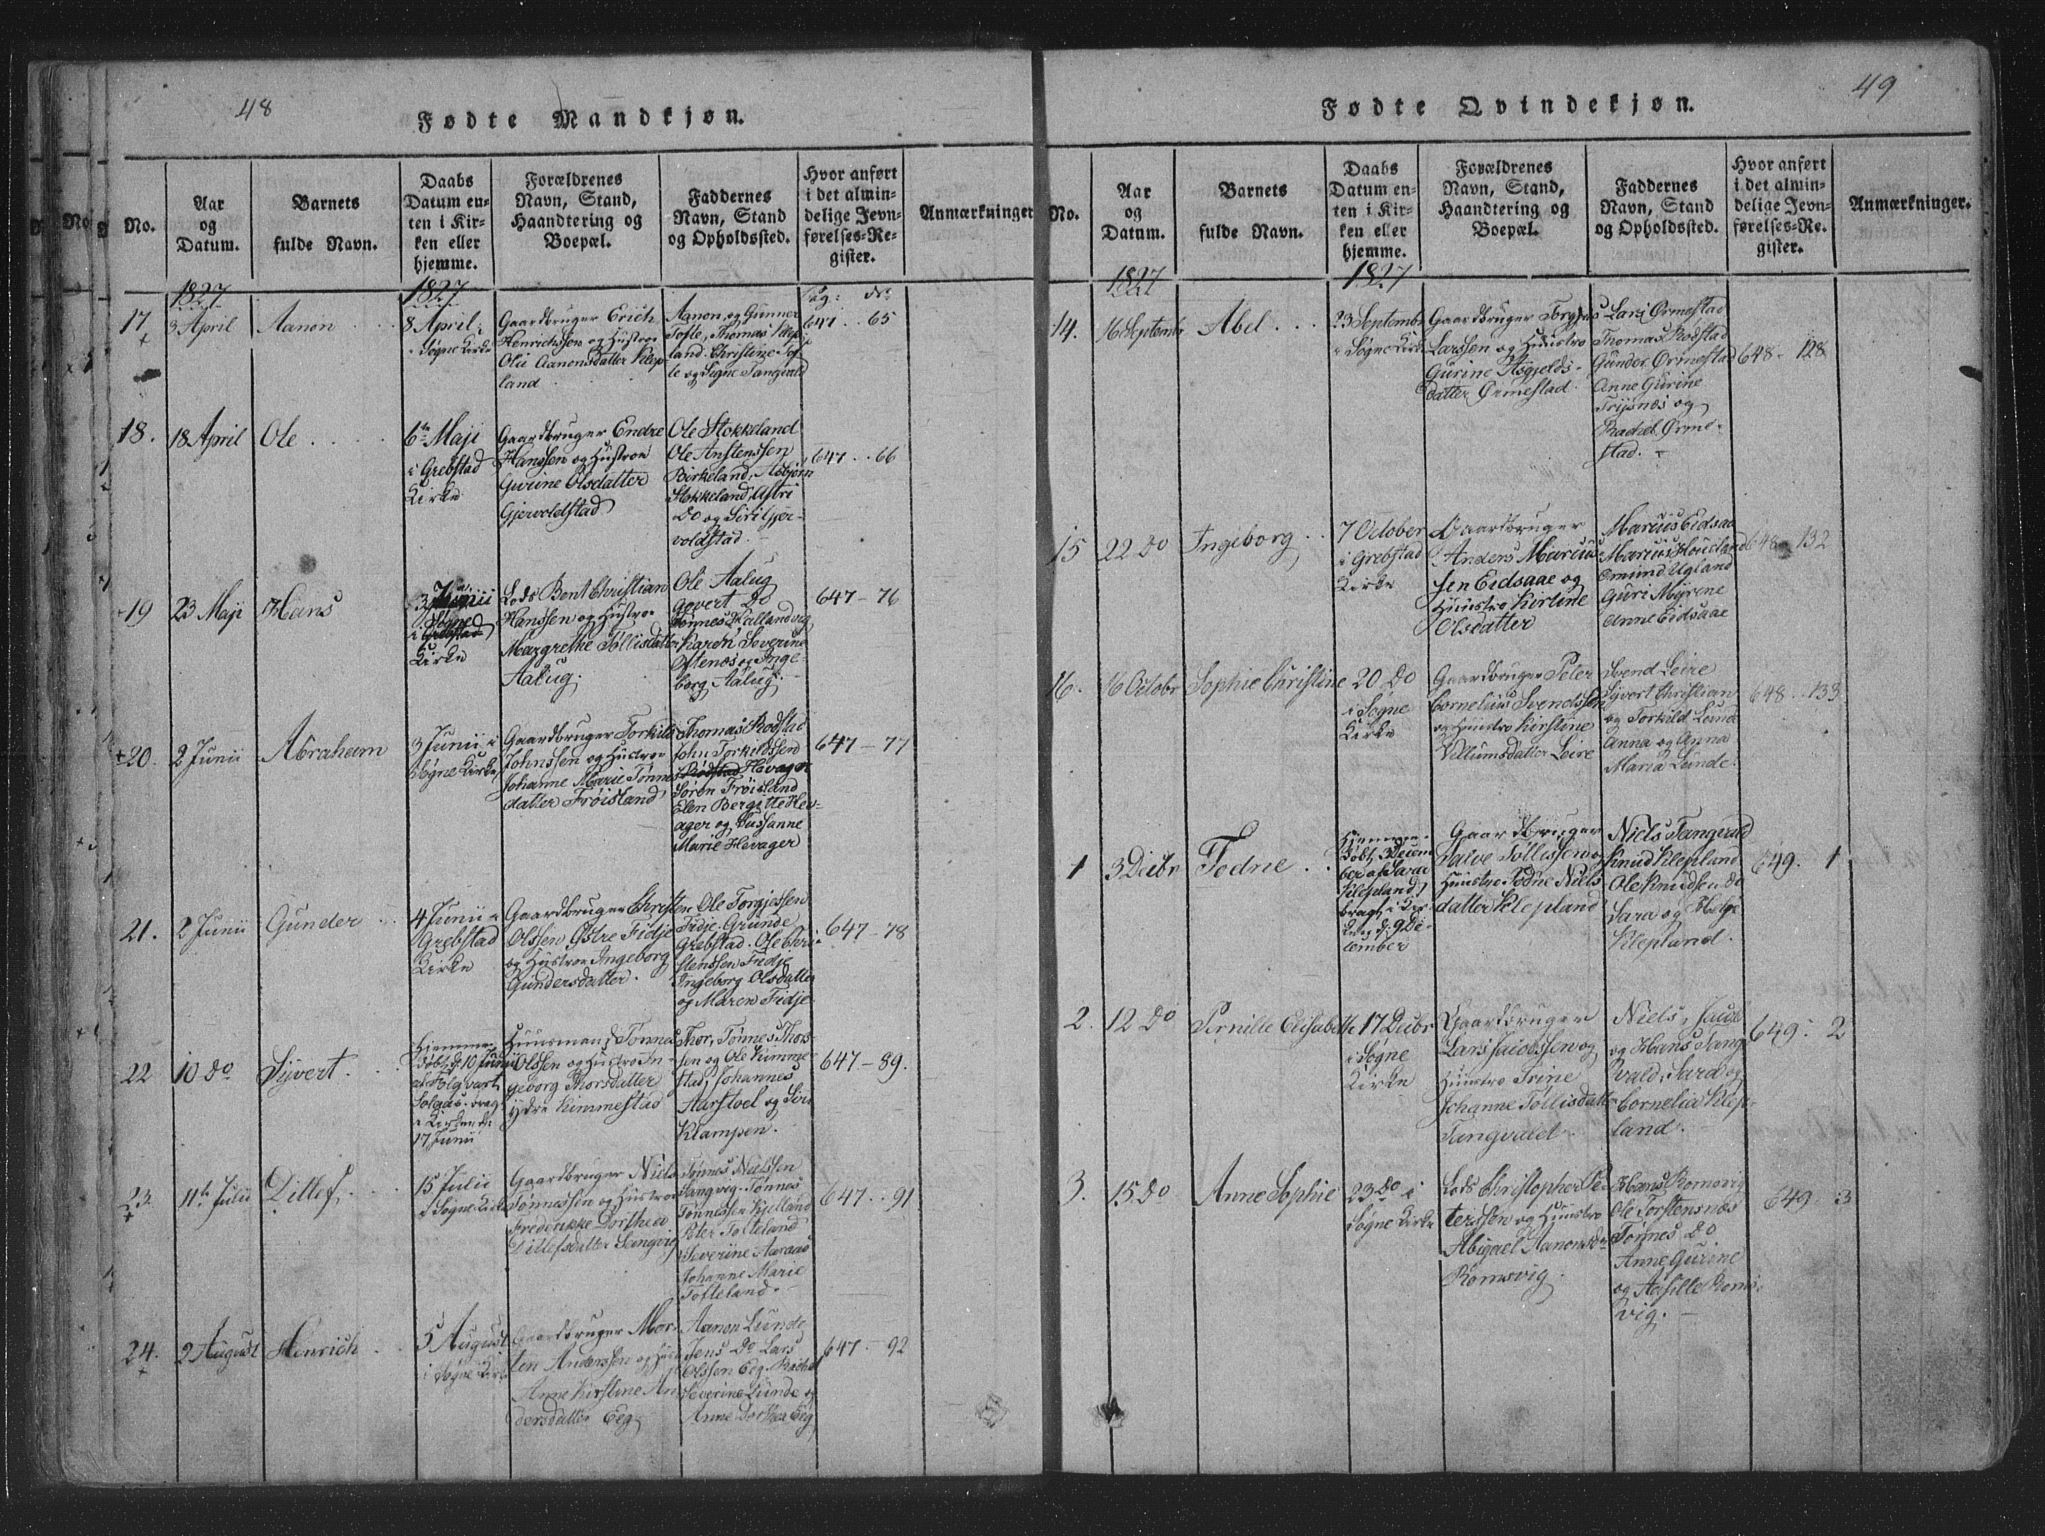 48
Fødte Mandkjøn.
No.
Aar
og
Datum.
Barnets
fulde Navn.
Daabs
Datum en-
ten i Kir-
ken eller
hjemme.
Forældrenes
Navn, Stand,
Haandtering og
Boepæl.
Faddernes
Navn, Stand
og Opholdssted.
Hvor anført
i det almin-
delige Jevn-
førelses-Re-
gister.
Anmærkninger
1827
1827
Pag: No
17
3 April
Aanon
8 April i
Søgne Kirke
Gaardbruger Erich
Henrichsen og Hustroe
Olie Aanonsdatter Klep
land
Aanon og Gunner
Tofte, Thomas Klep
land. Christine Tof
te og Signe Tangvald
647 .. 65
18.
18 April
Ole
6te Maji
i Grebstad
Kirke
Gaardbruger Endre
Hanssen og Hustroe
Gurine Olsdatter
Gjervoldstad
Ole Stokkeland
Ole Anstenssen
Birkeland, Asbjørn
Stokkeland, Astri
Do og Siri Gjer-
voldstad.
647 .. 66
19
23 Maji
Hans
3 Junii
Søgne
i Grebstad
Kirke
Lods Bent Christian
Hanssen og Hustroe
Margrethe Tøllisdatter
Aalug.
Ole Aalug
Gevert Do
Tønnes Hallandvig
Karen Severine
Østenæs og Inge-
borg Aalug.
647 - 76
20.
2 Junii
Abraham
3 Junii i
Søgne Kirke
Gaardbruger Torkild
Johnssen og Hustroe
Johanne Marie Tønnes
datter Frøisland
Thomas Rodstad
John Torkildsen
Rodstad Høvager
Søren Frøisland
Elen Bergitte Høv-
ager og Sussanne
Marie Høvager
647 - 77
21.
2 Junii
Gunder
4 Junii i
Grebstad
Kirke
Gaardbruger Christen
Olssen Østre Fidje
og Hustroe Ingeborg
Gundersdatter.
Ole Torgjessen
Fidje. Grunde
Grebstad. Ole Chri-
stenssen Fidje
Ingeborg Olsdatter
og Maren Fidje
647 - 78
22
10 Do
Syvert
Hjemme-
døbt d. 10 Junii
af Helg
Solaas. brag
i Kirken d:
17 Junii
Huusmand Tønnes
Olssen og Hustroe In-
geborg Thorsdatter
Ydre Kimmestad
Thor, Tønnes Thors-
sen og Ole Kimme-
stad, Johannes
Aarstoel og Siri
Klampen.
647 - 89.
23.
11te Julii
Ditlef
15 Julii
i Søgne Kirke
Gaardbruger Niels
Tønnessen og Hustroe
Frederikke Dorthea
Ditlefsdatter Langvig
Tønnes Nielssen
Langvig. Tønnes
Tønnessen Kjelland
Peter Tofteland
Severine Aaraas
Johanne Marie
Tofteland.
647 .. 91
24.
2 August
Henrich
5 August
i Søgne Kirke
Gaardbruger Mor-
ten Anderssen og Hustr
Anne Kirstine An
dersdatter Eeg
Aanon Lunde
Jens Do Lars
Olssen Eeg. Rachel
Severine Lunde og
Anne Dorthea Eeg
647 - 92
49
Fødte Qvindekjøn.
No.
Aar
og
Datum.
Barnets
fulde Navn.
Daabs
Datum en-
ten i Kir-
ken eller
hjemme.
Forældrenes
Navn, Stand,
Haandtering og
Boepæl.
Faddernes
Navn, Stand
og Opholdssted.
Hvor anført
i det almin-
delige Jevn-
førelses-Re-
gister.
Anmærkninger.
1827
1827
14.
16 Septembr
Abel
23 Septembr
i Søgne Kirke
Gaardbruger Torgjus
Larssen og Huustro
Gurine Asgjelds-
datter Ørmestad.
Lars Ørmestad
Thomas Rodstad
Gunder Ørmestad
Anne Gurine
Trysnæs og
Rachel Ørme-
stad.
648 - 128
15
22 Do
Ingeborg
7 October
i Grebstad
Kirke
Gaardbruger
Anders Marcus
sen Eidsaae og
Huustro Kirtine
Olsdatter
Marcus Eidsaa
Marcus Houeland
Omund Ugland
Guri Myrene
Anne Eidsaae
648 - 132
16.
16 Octobr
Sophie Christine
20 Do
i Søgne
Kirke
Gaardbruger Peter
Cornelius Svendssen
og Huustro Kirstine
Villumsdatter Leire
Svend Leire
Syvert Christian
og Torkild Lunde
Anna og Anna
Maria Lunde.
648 .. 133
1
3 Decbr
Todne
Hjemme-
døbt 3 Decem
ber af Sara
Klepland,
bragt i Kir-
ken d. 9 De-
cember
Gaardbruger
Salve Tøllissen og
Huustro Todne Niels
datter Klepland
Niels Tangvald
Knud Klepland
Ole Knudsen Do
Sara og Helge
Klepland.
649. 1
2.
12 Do
Pernille Elisabeth
17 Decbr
i Søgne
Kirke
Gaardbruger
Lars Jacobssen og
Huustro Trine
Johanne Tøllisdatter
Tangvald
Niels, Jacob
og Hans Tang
vald, Sara og
Cornelia Klep-
land.
649. 2
3.
15 Do
Anne Sophie
23 Do i
Søgne Kirke
Lods Christopher Pe-
terssen og Huustro
Abigael Aanonsdr
Romsvig.
Hans Romsvig
Ole Torstensnæs
Tønnes Do
Anne Gurine
og Assille Roms-
vig.
649 . 3